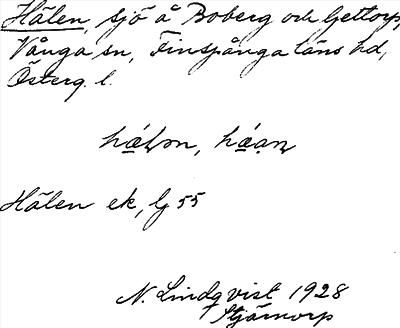 Hälen, sjö å Boberg och Gettorp,
Vånga sn, Finspånga läns hd,
Österg. l.
Hälen ek, bl 55
N. Lindqvist 1928
Stjärnorp